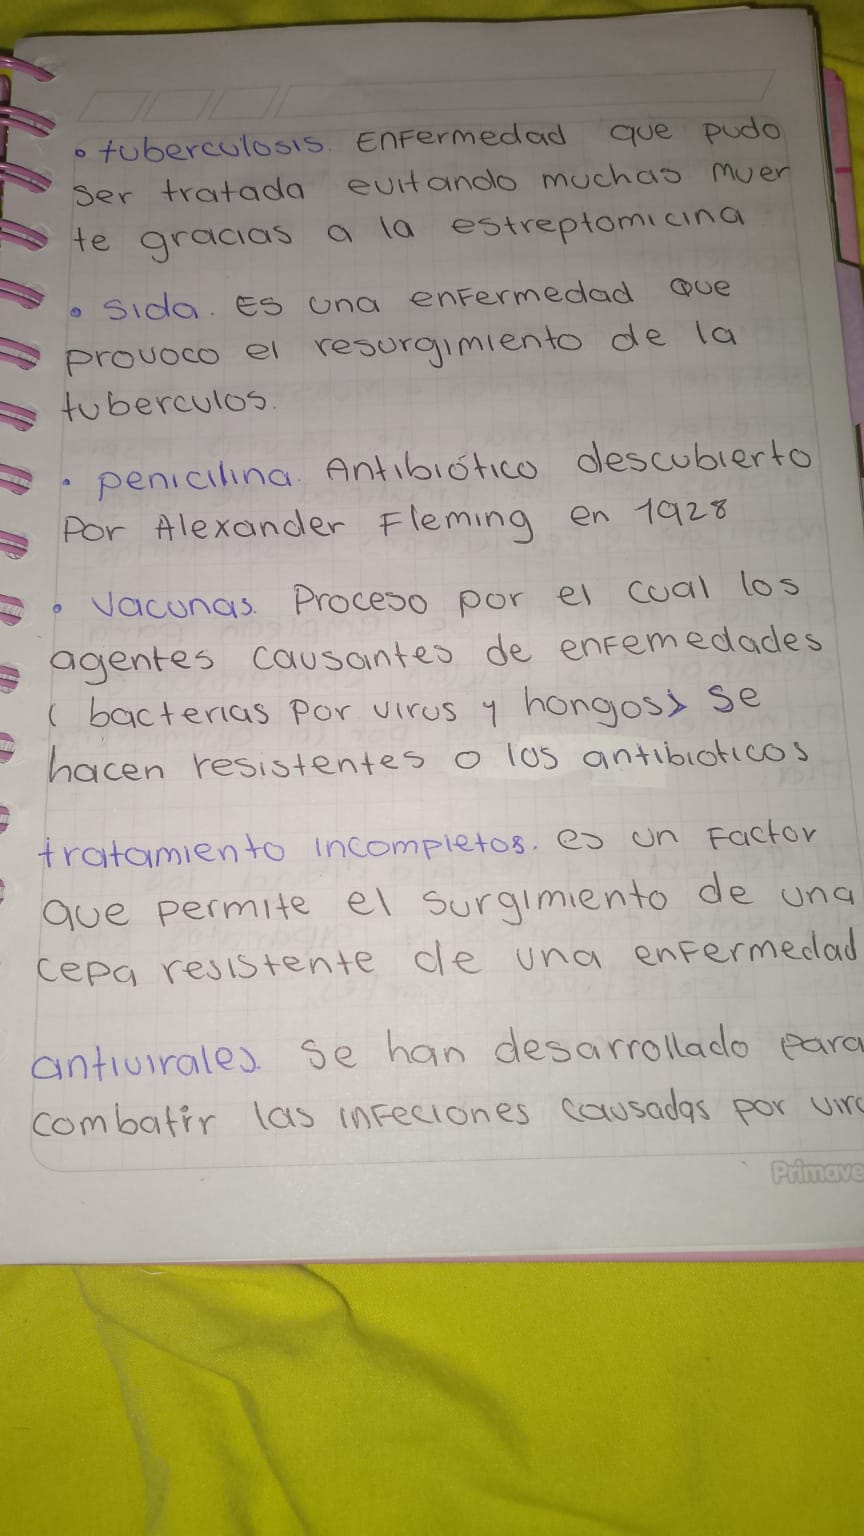 • tuberculosis. Enfermedad que pudo
ser tratada evitando muchas muer
te gracias a la estreptomicina
• Sida. Es una enfermedad que
provoco el resurgimiento de la
tuberculos.
• penicilina. Antibiótico descubierto
Por Alexander Fleming en 1928
• Vacunas. Proceso por el cual los
agentes causantes de enfemedades
( bacterias por virus y hongos) se
hacen resistentes o los antibioticos
tratamiento incompletos. es un Factor
que permite el surgimiento de una
cepa resistente de una enfermedad
antivirales. Se han desarrollado para
combatir las infeciones causadas por
Primave